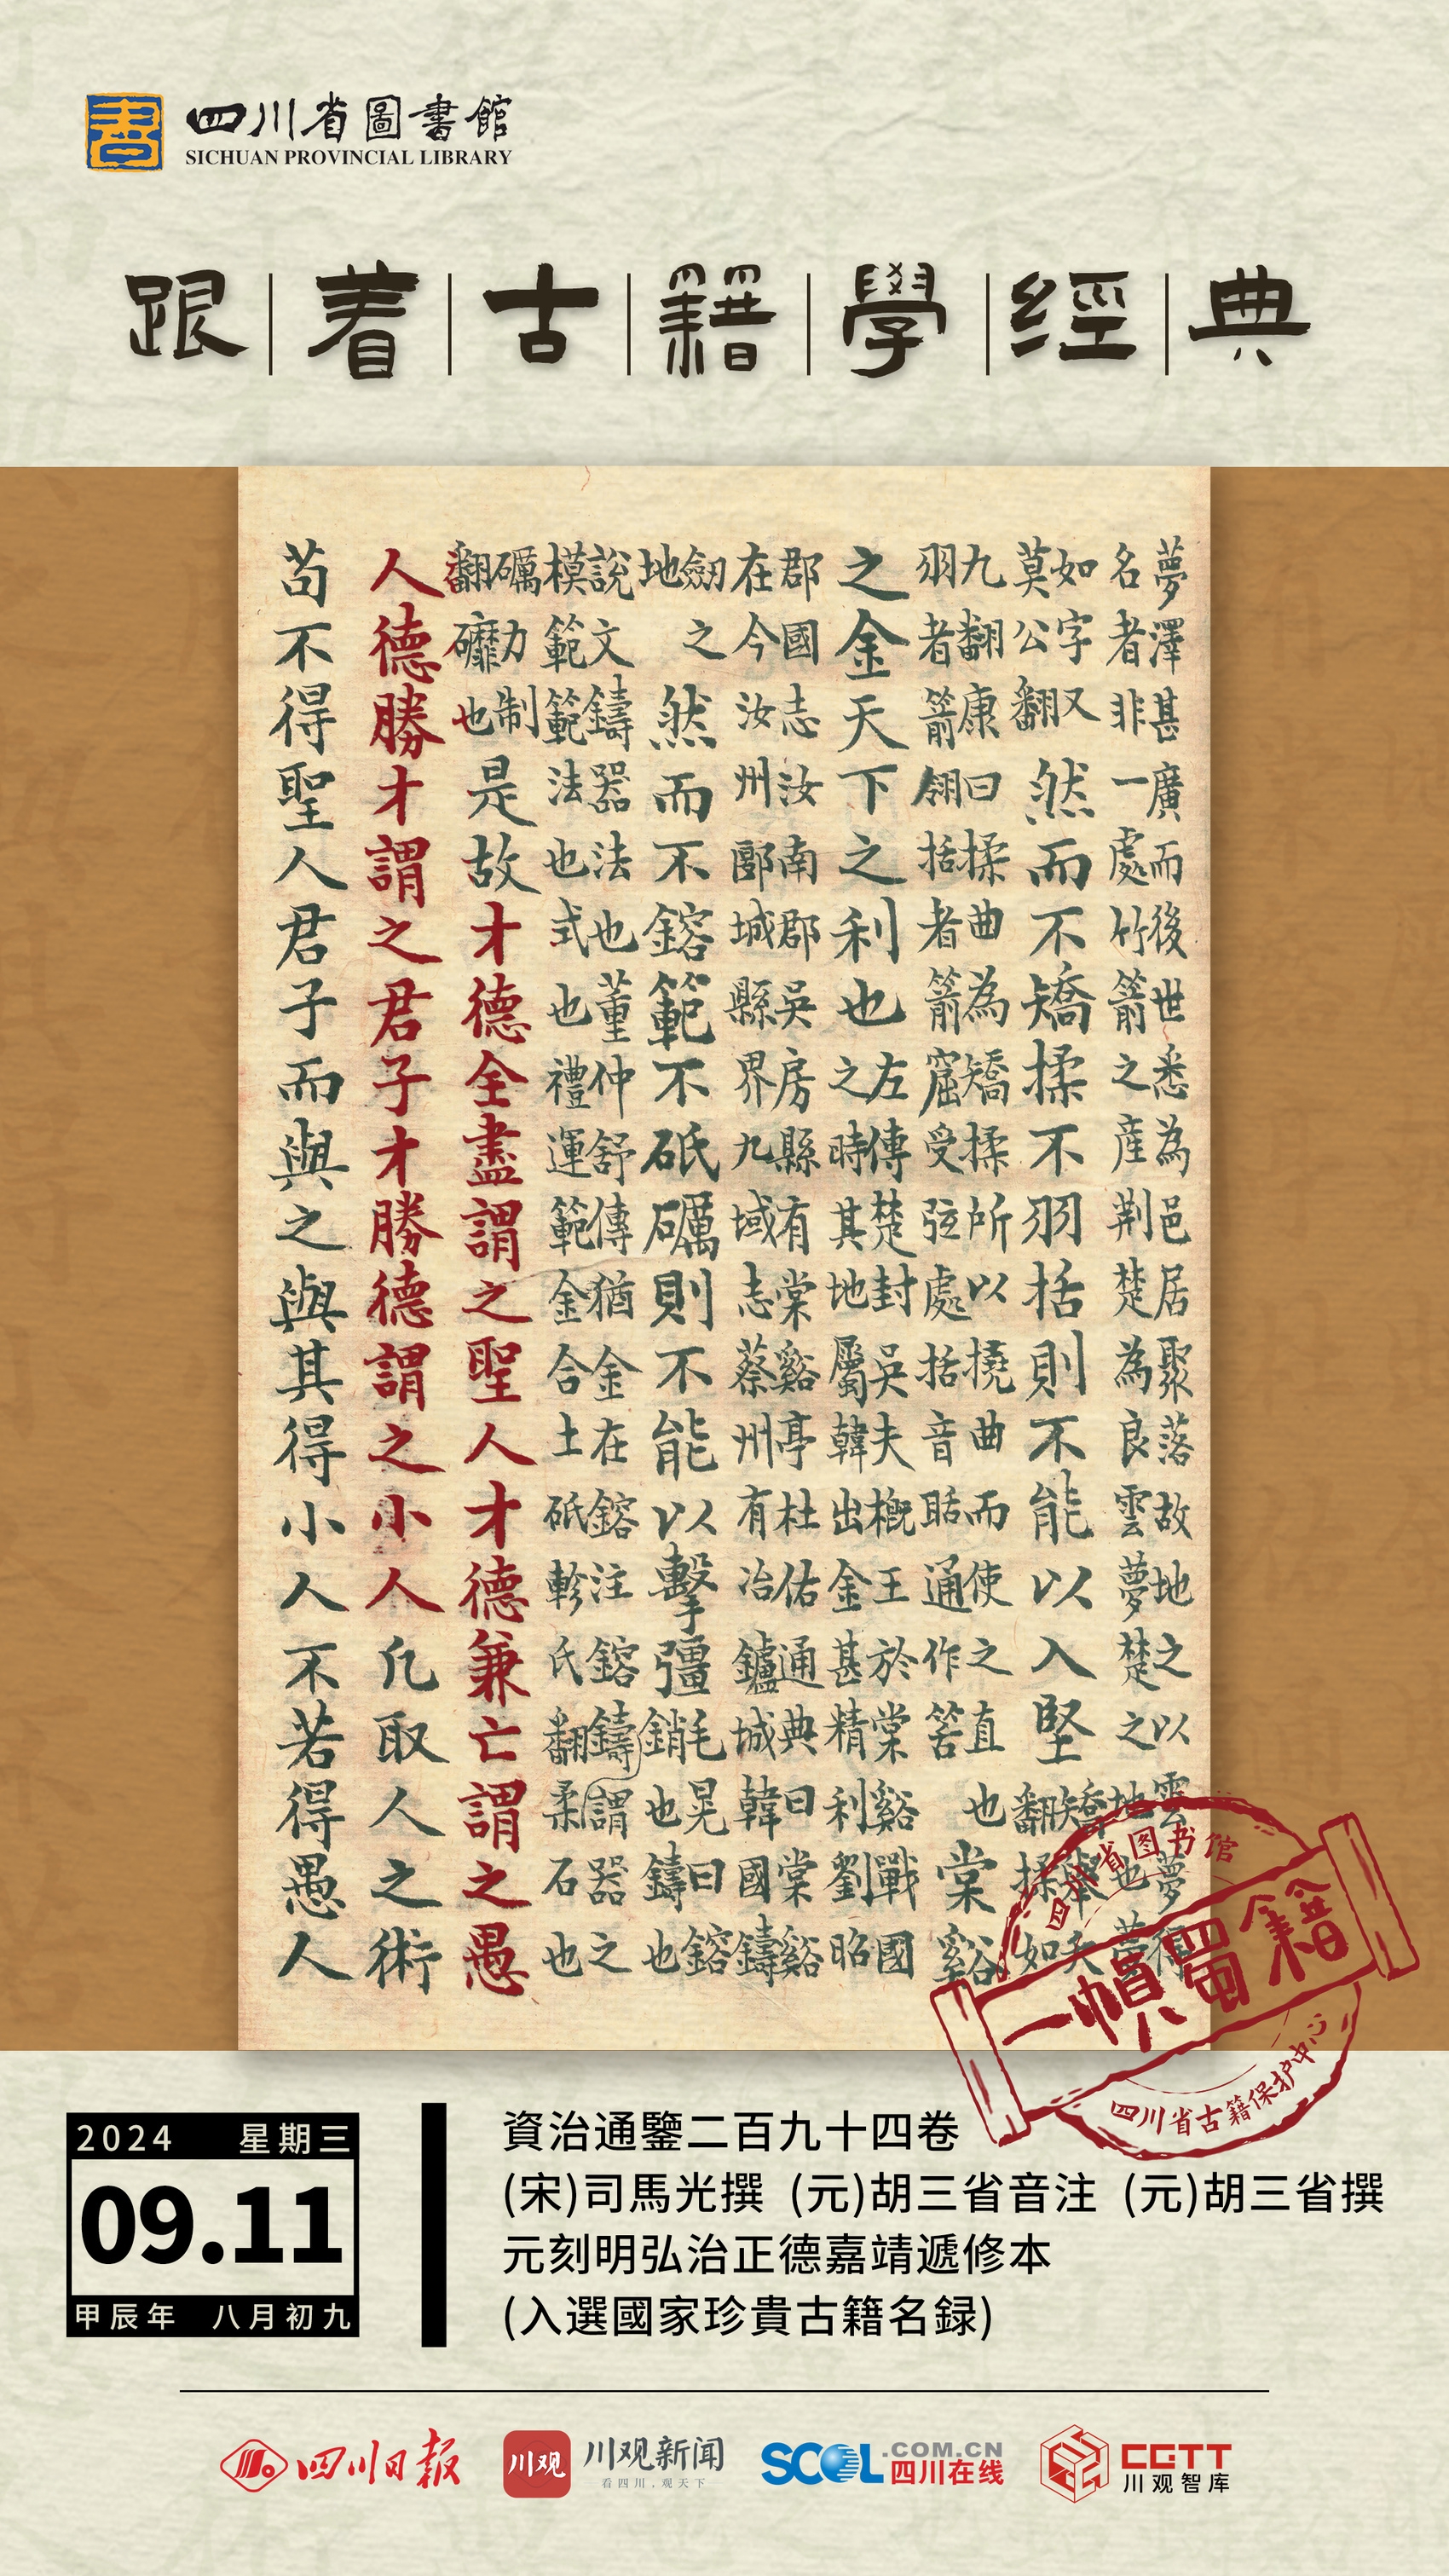 四川省圖書館
SICHUAN PROVINCIAL LIBRARY
跟着古籍學經典
夢澤甚廣而後世悉為邑居聚落故地之以雲夢得
名者非一處竹箭之産荆楚為良雲夢楚之地也夢
如字又
莫公翻
然而不矯揉不羽括則不能以入堅
矯舉夭
翻揉如
九翻康曰揉曲為矯揉所以撓曲而使之直也
羽者箭翎括者箭窟受弦處括音聒通作筈
棠谿
之金天下之利也
左傳楚封吳夫概王於棠谿戰國
之時其地屬韓出金甚精利劉昭
郡國志汝南郡吳房縣有棠谿亭杜佑通典曰棠谿
在今汝州郾城縣界九域志蔡州有冶鑪城韓國鑄
劒之
地
然而不鎔範不砥礪則不能以擊彊
毛晃曰鎔
銷也鑄也
說文鑄器法也董仲舒傳猶金在鎔注鎔鑄謂器之
模範範法也式也禮運範金合土砥軫氏翻柔石也
礪力制
翻礳也
是故才德全盡謂之聖人才德兼亡謂之愚
人德勝才謂之君子才勝德謂之小人凡取人之術
苟不得聖人君子而與之與其得小人不若得愚人
四川省图书馆
一幀蜀籍
四川省古籍保护中心
2024 星期三
09.11
甲辰年 八月初九
資治通鑒二百九十四卷
(宋)司馬光撰 (元)胡三省音注 (元)胡三省撰
元刻明弘治正德嘉靖遞修本
(入選國家珍貴古籍名録)
四川日报
川观
川观新闻
看四川，观天下
SCOL.COM.CN
四川在线
CGTT
川观智库